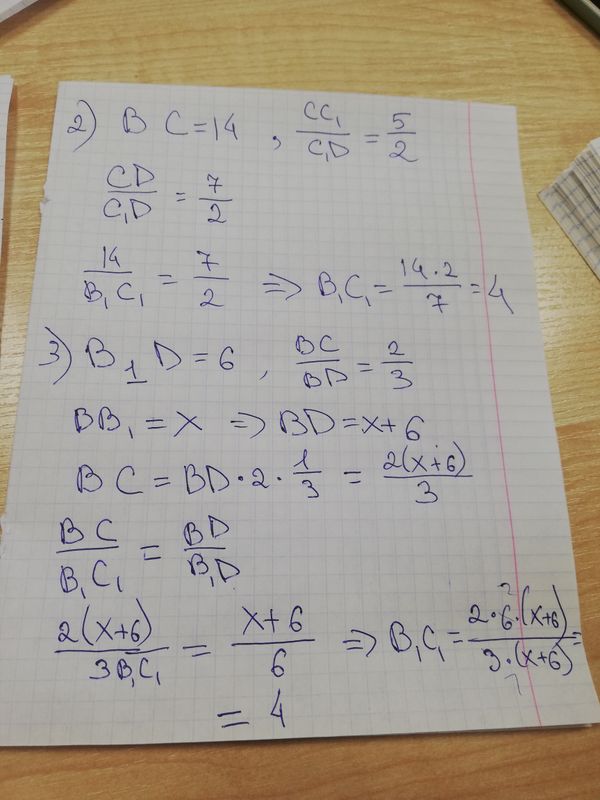 2) BC = 14 , CC₁/C₁D = 5/2
CD/C₁D = 7/2
14/B₁C₁ = 7/2 => B₁C₁ = 14·2/7 = 4
3) B₁D = 6 , BC/BD = 2/3
BB₁ = x => BD = x+6
BC = BD·2·1/3 = 2(x+6)/3
BC/B₁C₁ = BD/B₁D
2(x+6)/3B₁C₁ = x+6/6 => B₁C₁ = 2·6·(x+6)/3·(x+6) =
= 4